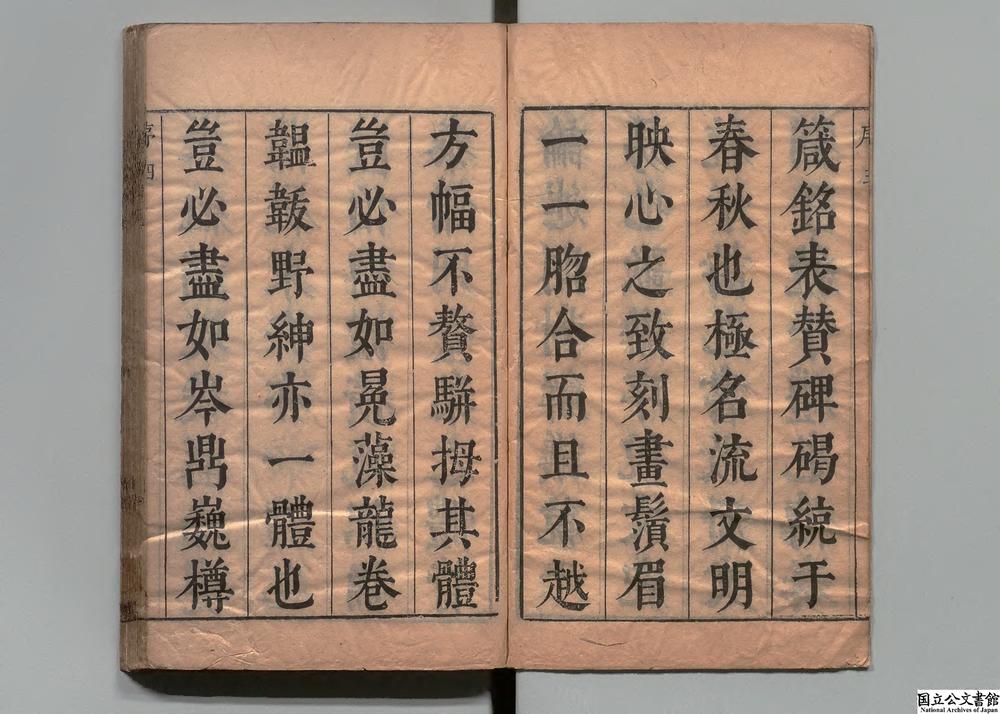 箴銘表賛碑碣統于
春秋也極名流文明
映心之致刻畫鬚眉
一一脗合而且不越
方幅不贅駢拇其體
豈必盡如冕藻龍卷
韞韍野紳亦一體也
豈必盡如岑鼎巍樽
序四
国立公文書館
National Archives of Japan